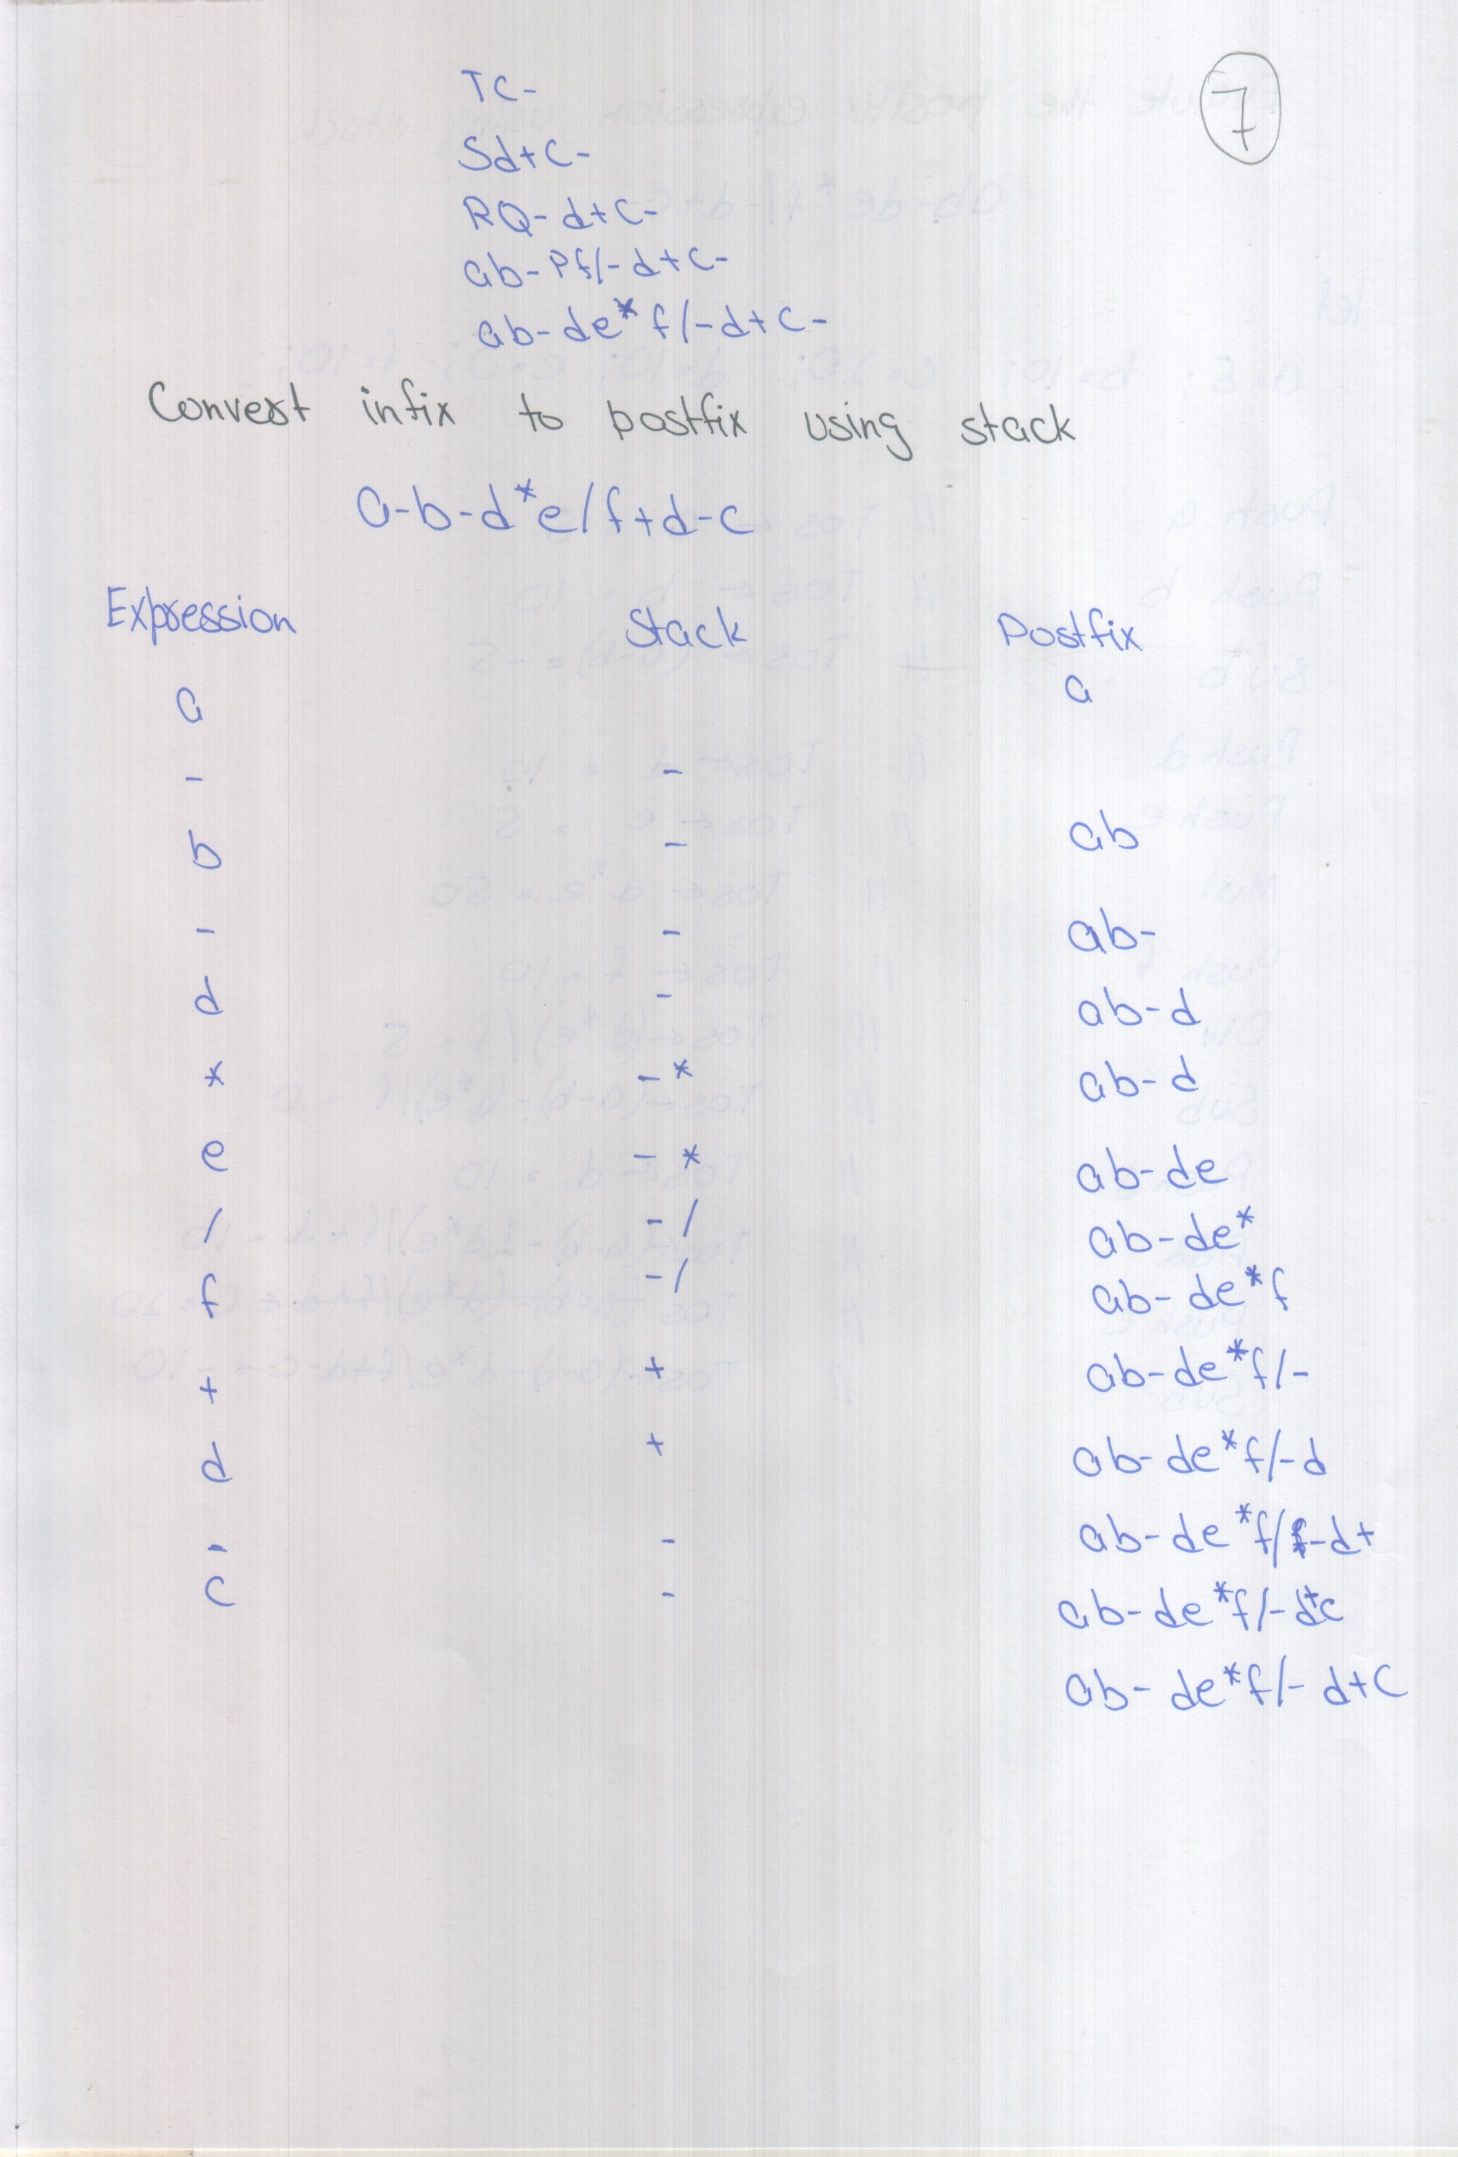 7
TC-
Sd+C-
RQ-d+C-
ab-Pf/-d+C-
ab-de*f/-d+C-
Convert infix to postfix using stack
a-b-d*e/f+d-c
Expression Stack Postfix
a a
- -
b - ab
- - ab-
d - ab-d
* -* ab-d
e -* ab-de
/ -/ ab-de*
f -/ ab-de*f
+ + ab-de*f/-
d + ab-de*f/-d
- - ab-de*f/-d+
c - ab-de*f/-d+c
ab-de*f/-d+C